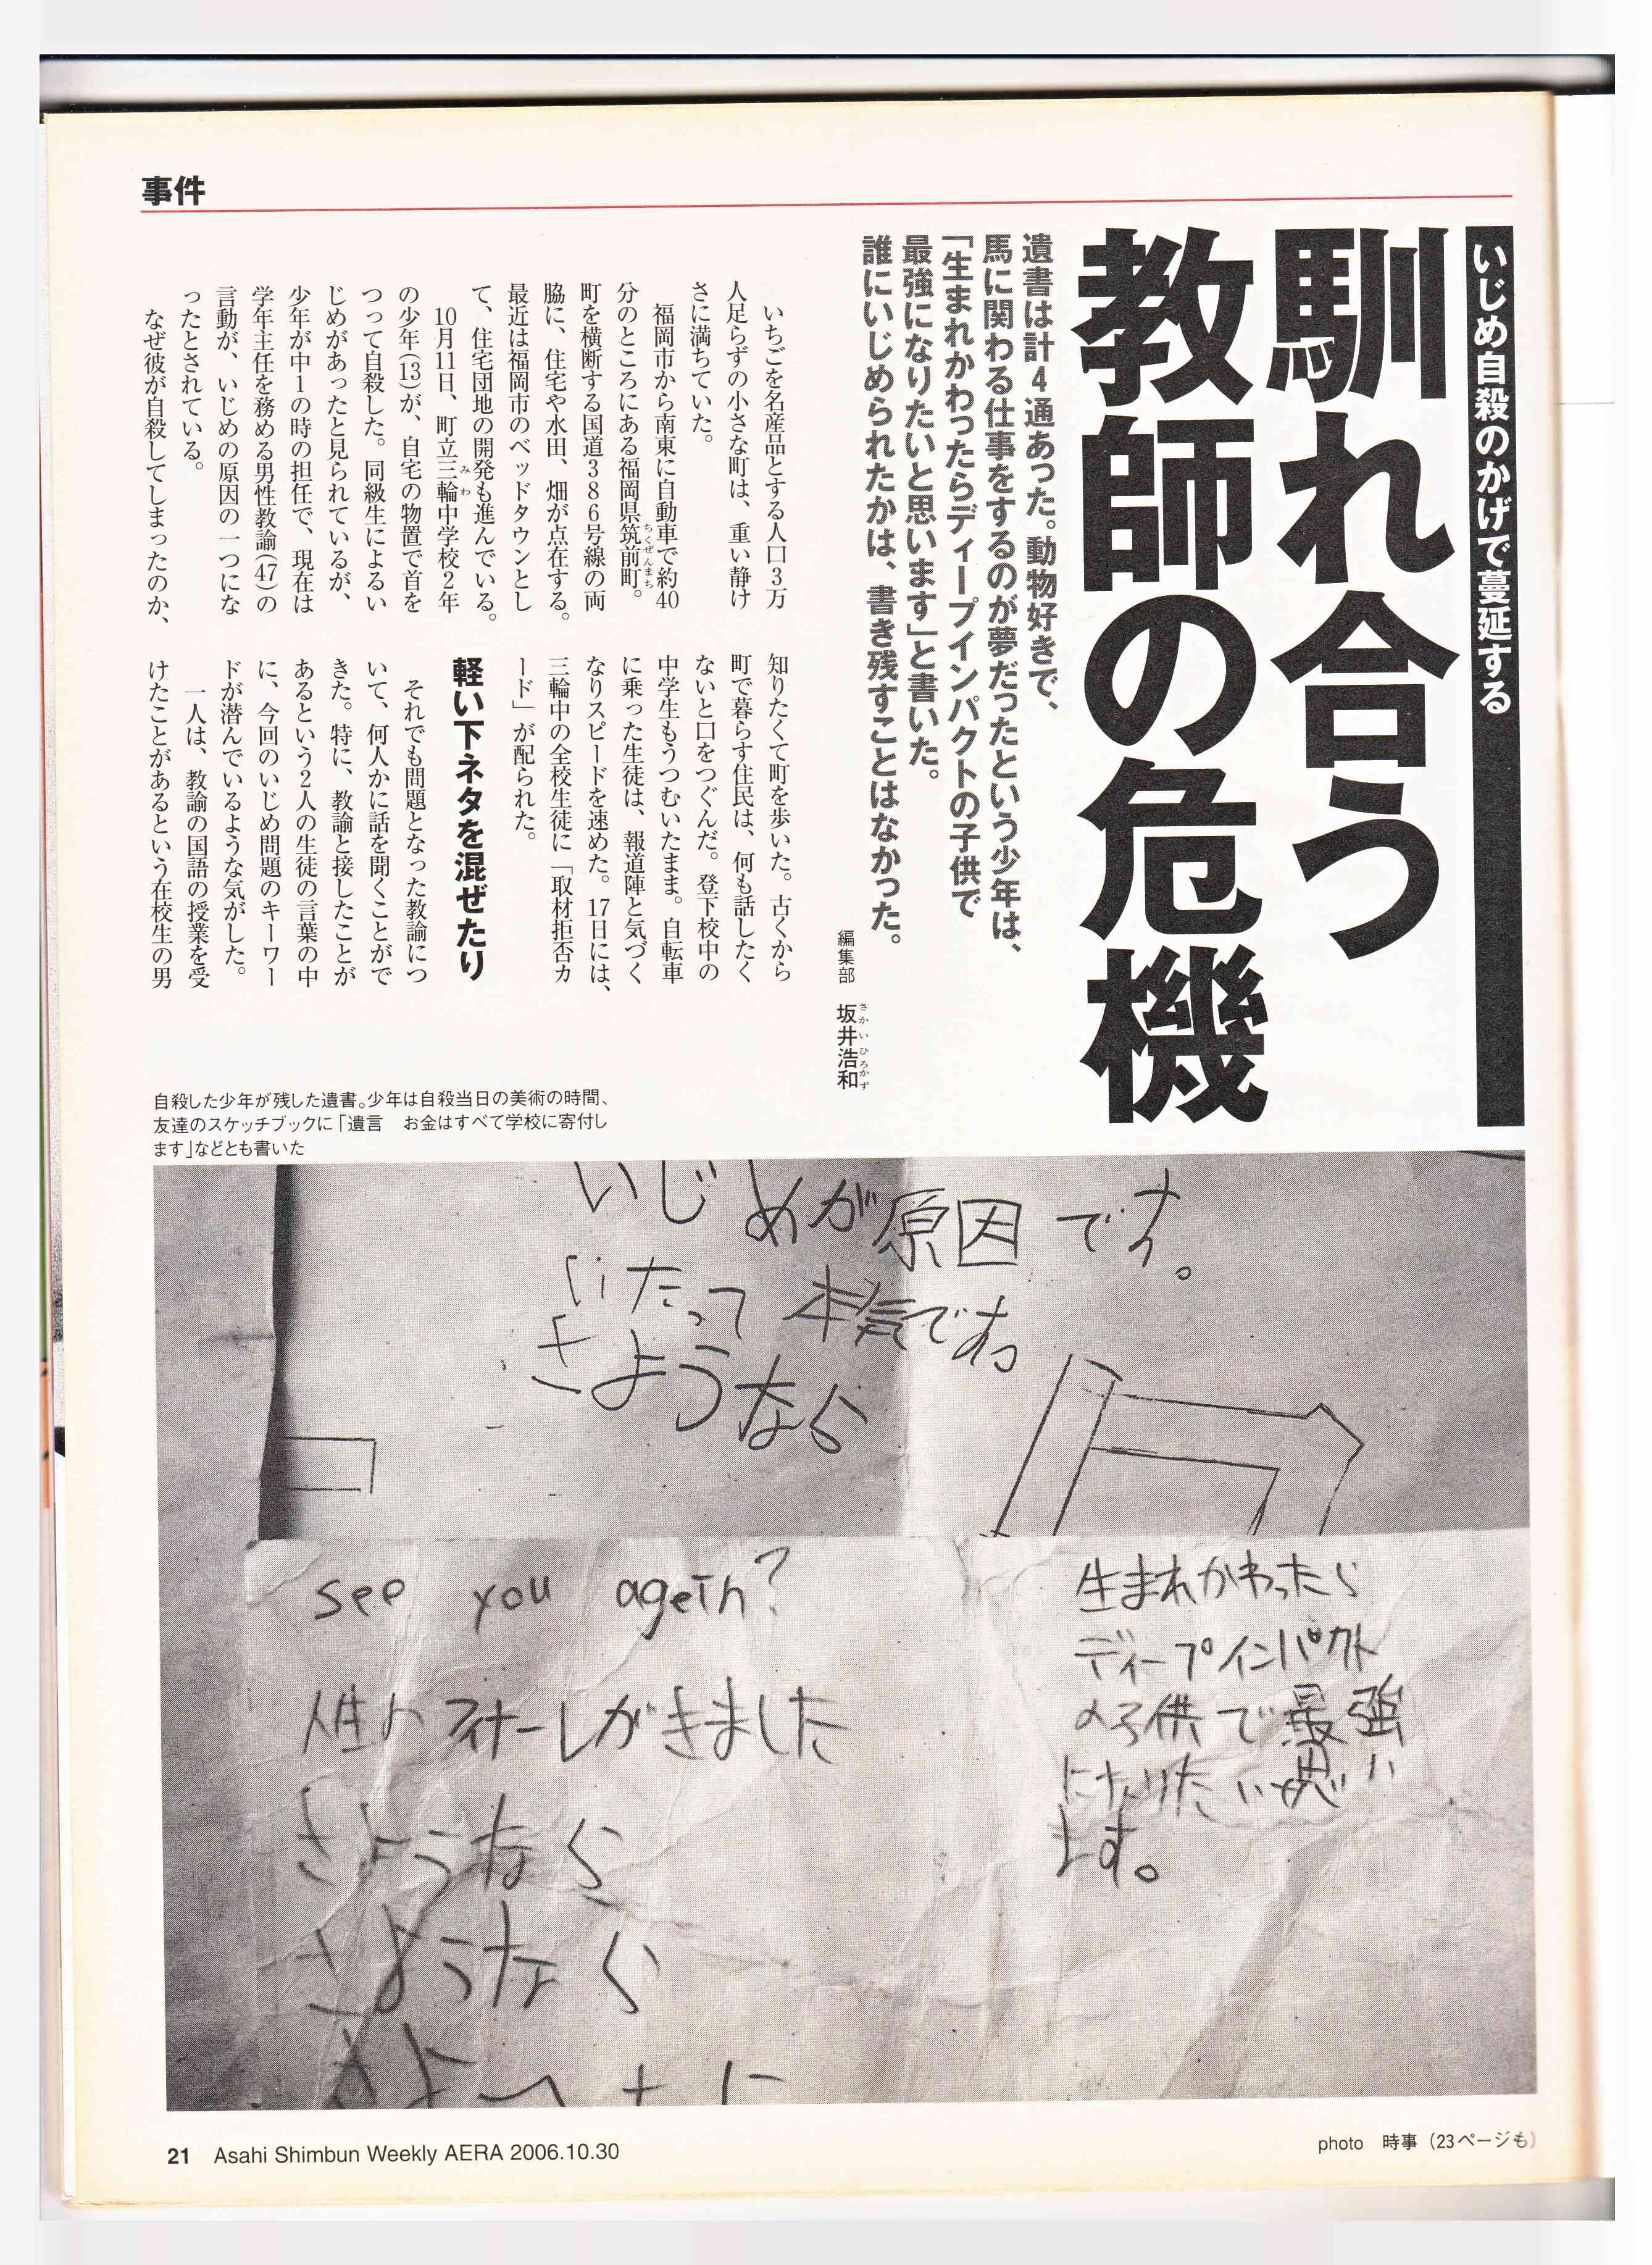 事件
いじめ自殺のかげで蔓延する
馴れ合う
教師の危機
遺書は計4通あった。動物好きで、
馬に関わる仕事をするのが夢だったという少年は、
「生まれかわったらディープインパクトの子供で
最強になりたいと思います」と書いた。
誰にいじめられたかは、書き残すことはなかった。
編集部 坂井浩和
さかいひろかず
いちごを名産品とする人口3万
人足らずの小さな町は、重い静け
さに満ちていた。
福岡市から南東に自動車で約40
分のところにある福岡県筑前町。
ちくぜんまち
町を横断する国道386号線の両
脇に、住宅や水田、畑が点在する。
最近は福岡市のベッドタウンとし
て、住宅団地の開発も進んでいる。
10月11日、町立三輪中学校2年
みわ
の少年(13)が、自宅の物置で首を
つって自殺した。同級生によるい
じめがあったと見られているが、
少年が中1の時の担任で、現在は
学年主任を務める男性教諭(47)の
言動が、いじめの原因の一つにな
ったとされている。
なぜ彼が自殺してしまったのか、
知りたくて町を歩いた。古くから
町で暮らす住民は、何も話したく
ないと口をつぐんだ。登下校中の
中学生もうつむいたまま。自転車
に乗った生徒は、報道陣と気づく
なりスピードを速めた。17日には、
三輪中の全校生徒に「取材拒否カ
ード」が配られた。
軽い下ネタを混ぜたり
それでも問題となった教諭につ
いて、何人かに話を聞くことがで
きた。特に、教諭と接したことが
あるという2人の生徒の言葉の中
に、今回のいじめ問題のキーワー
ドが潜んでいるような気がした。
一人は、教諭の国語の授業を受
けたことがあるという在校生の男
自殺した少年が残した遺書。少年は自殺当日の美術の時間、
友達のスケッチブックに「遺言　お金はすべて学校に寄付し
ます」などとも書いた
いじめが原因です。
いたって本気です。
さようなら
see you agein?
人生のフィナーレがきました
さようなら
さようなら
生まれかわったら
ディープインパクト
の子供で最強
になりたいと思い
ます。
21 Asahi Shimbun Weekly AERA 2006.10.30
photo 時事（23ページも）